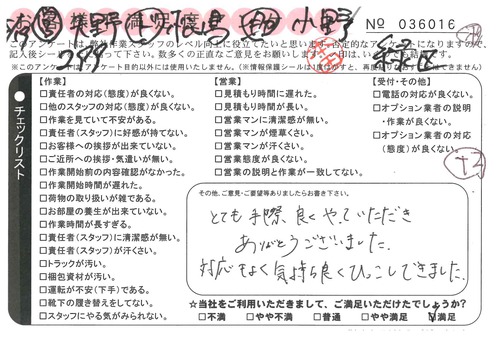 No 036016
緑区
このアンケートは、弊社作業スタッフのレベル向上に役立てたいと思います。否定的なアンケートになりますが、
チェックリスト
【作業】
□責任者の対応(態度)が良くない。
□他のスタッフの対応(態度)が良くない。
□作業を見ていて不安がある。
□責任者(スタッフ)に好感が持てない。
□お客様への挨拶が出来ていない。
□ご近所への挨拶・気遣いが無い。
□作業開始前の内容確認がなかった。
□作業開始時間が遅れた。
□荷物の取り扱いが雑である。
□お部屋の養生が出来ていない。
□作業時間が長すぎる。
□責任者(スタッフ)に清潔感が無い。
□責任者(スタッフ)が汗くさい。
□トラックが汚い。
□梱包資材が汚い。
□運転が不安(下手)である。
□靴下の履き替えをしてない。
□スタッフにやる気がみられない。
【営業】
□見積もり時間に遅れた。
□見積もり時間が長い。
□営業マンに清潔感が無い。
□営業マンが煙草くさい。
□営業マンが汗くさい。
□営業態度が良くない。
□営業の説明と作業が一致してない。
【受付・その他】
□電話の対応が良くない。
□オプション業者の説明
・作業が良くない。
□オプション業者の対応
(態度)が良くない。
その他、ご意見・ご要望等ありましたらお書き下さい。
とても手際良くやっていただき
ありがとうございました。
対応もよく気持ち良くひっこしできました。
☆当社をご利用いただきまして、ご満足いただけたでしょうか?
□不満 □やや不満 □普通 □やや満足 □満足